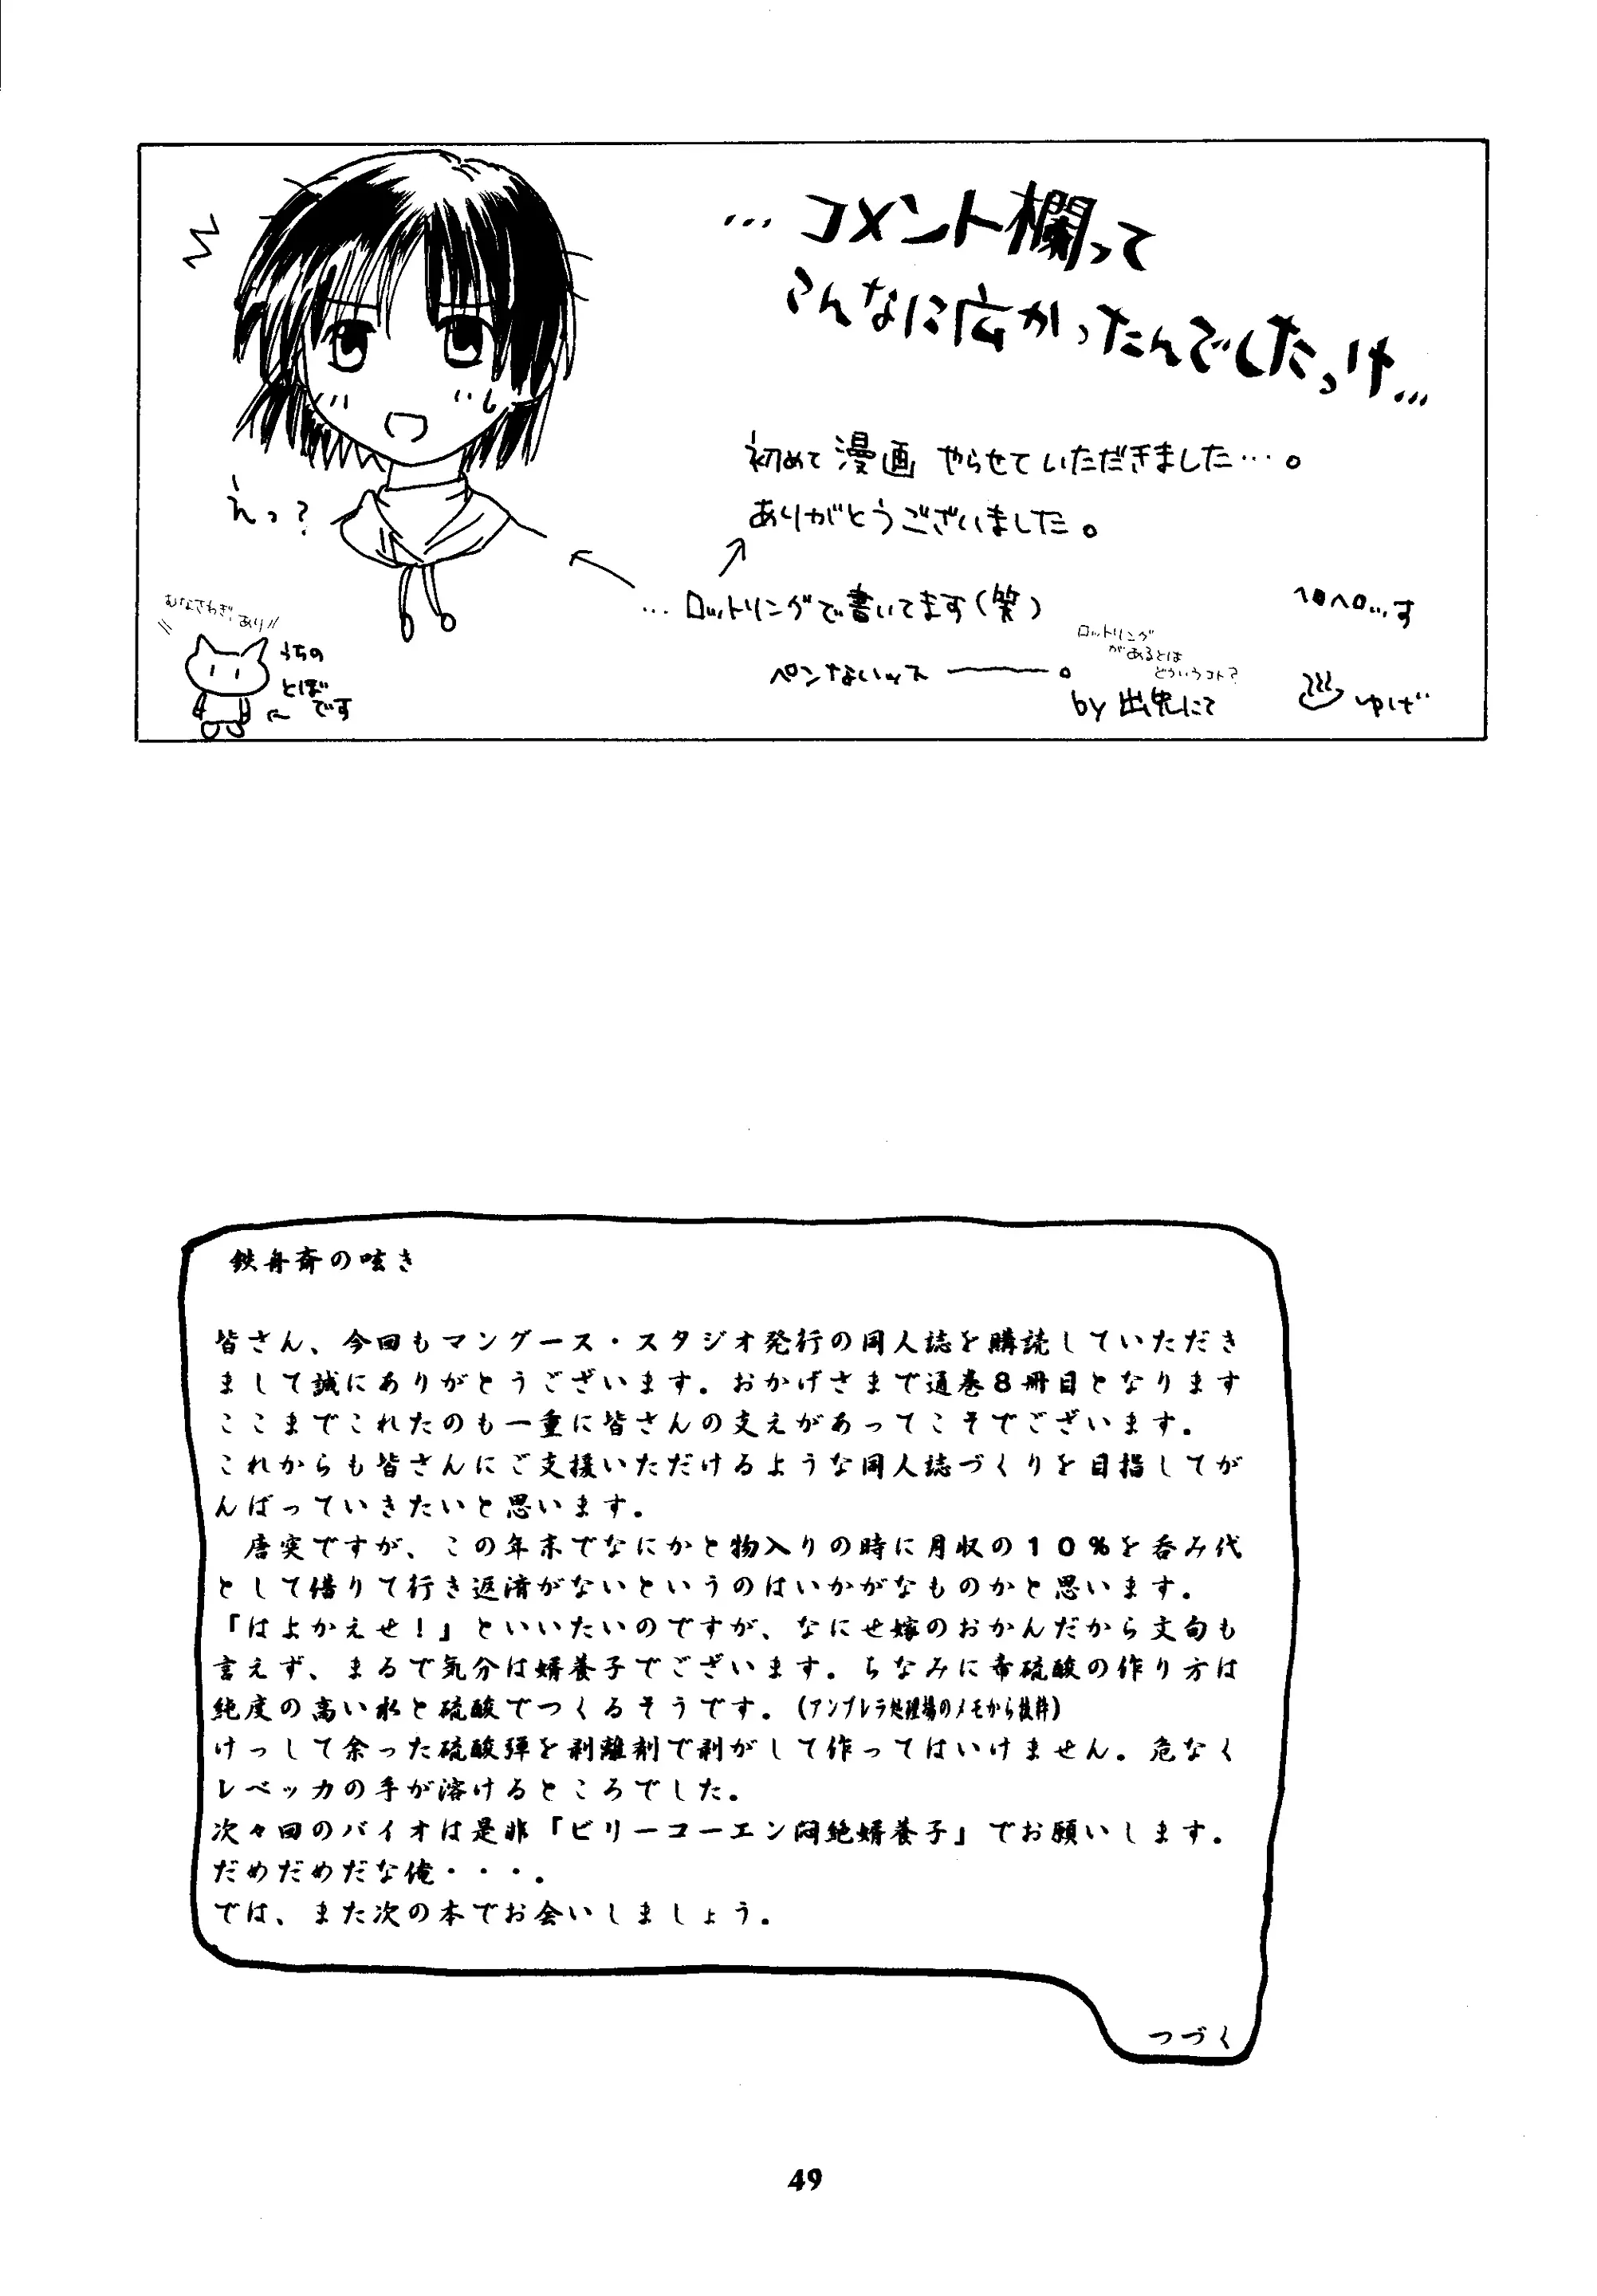 …コメント欄って
こんなに広かったんでしたっけ…
初めて漫画やらせていただきました…。
ありがとうございました。
えっ？
…ロットリングで書いてます(笑)
ヘロヘロ…す
むなさわぎ、あり//
うちの
とぼ
です
ロットリング
があるとは
どういうコト？
ペンないッス―――。
by 出先にて
ゆげ
鉄舟斎の呟き
皆さん、今回もマングース・スタジオ発行の同人誌を購読していただき
まして誠にありがとうございます。おかげさまで通巻８冊目となります
ここまでこれたのも一重に皆さんの支えがあってこそでございます。
これからも皆さんにご支援いただけるような同人誌づくりを目指してが
んばっていきたいと思います。
唐突ですが、この年末でなにかと物入りの時に月収の１０％を呑み代
として借りて行き返済がないというのはいかがなものかと思います。
「はよかえせ！」といいたいのですが、なにせ嫁のおかんだから文句も
言えず、まるで気分は婿養子でございます。ちなみに希硫酸の作り方は
純度の高い水と硫酸でつくるそうです。(アンブレラ処理場のメモから抜粋)
けっして余った硫酸弾を剥離剤で剥がして作ってはいけません。危なく
レベッカの手が溶けるところでした。
次々回のバイオは是非「ビリーコーエン悶絶婿養子」でお願いします。
だめだめだな俺・・・。
では、また次の本でお会いしましょう。
つづく
49